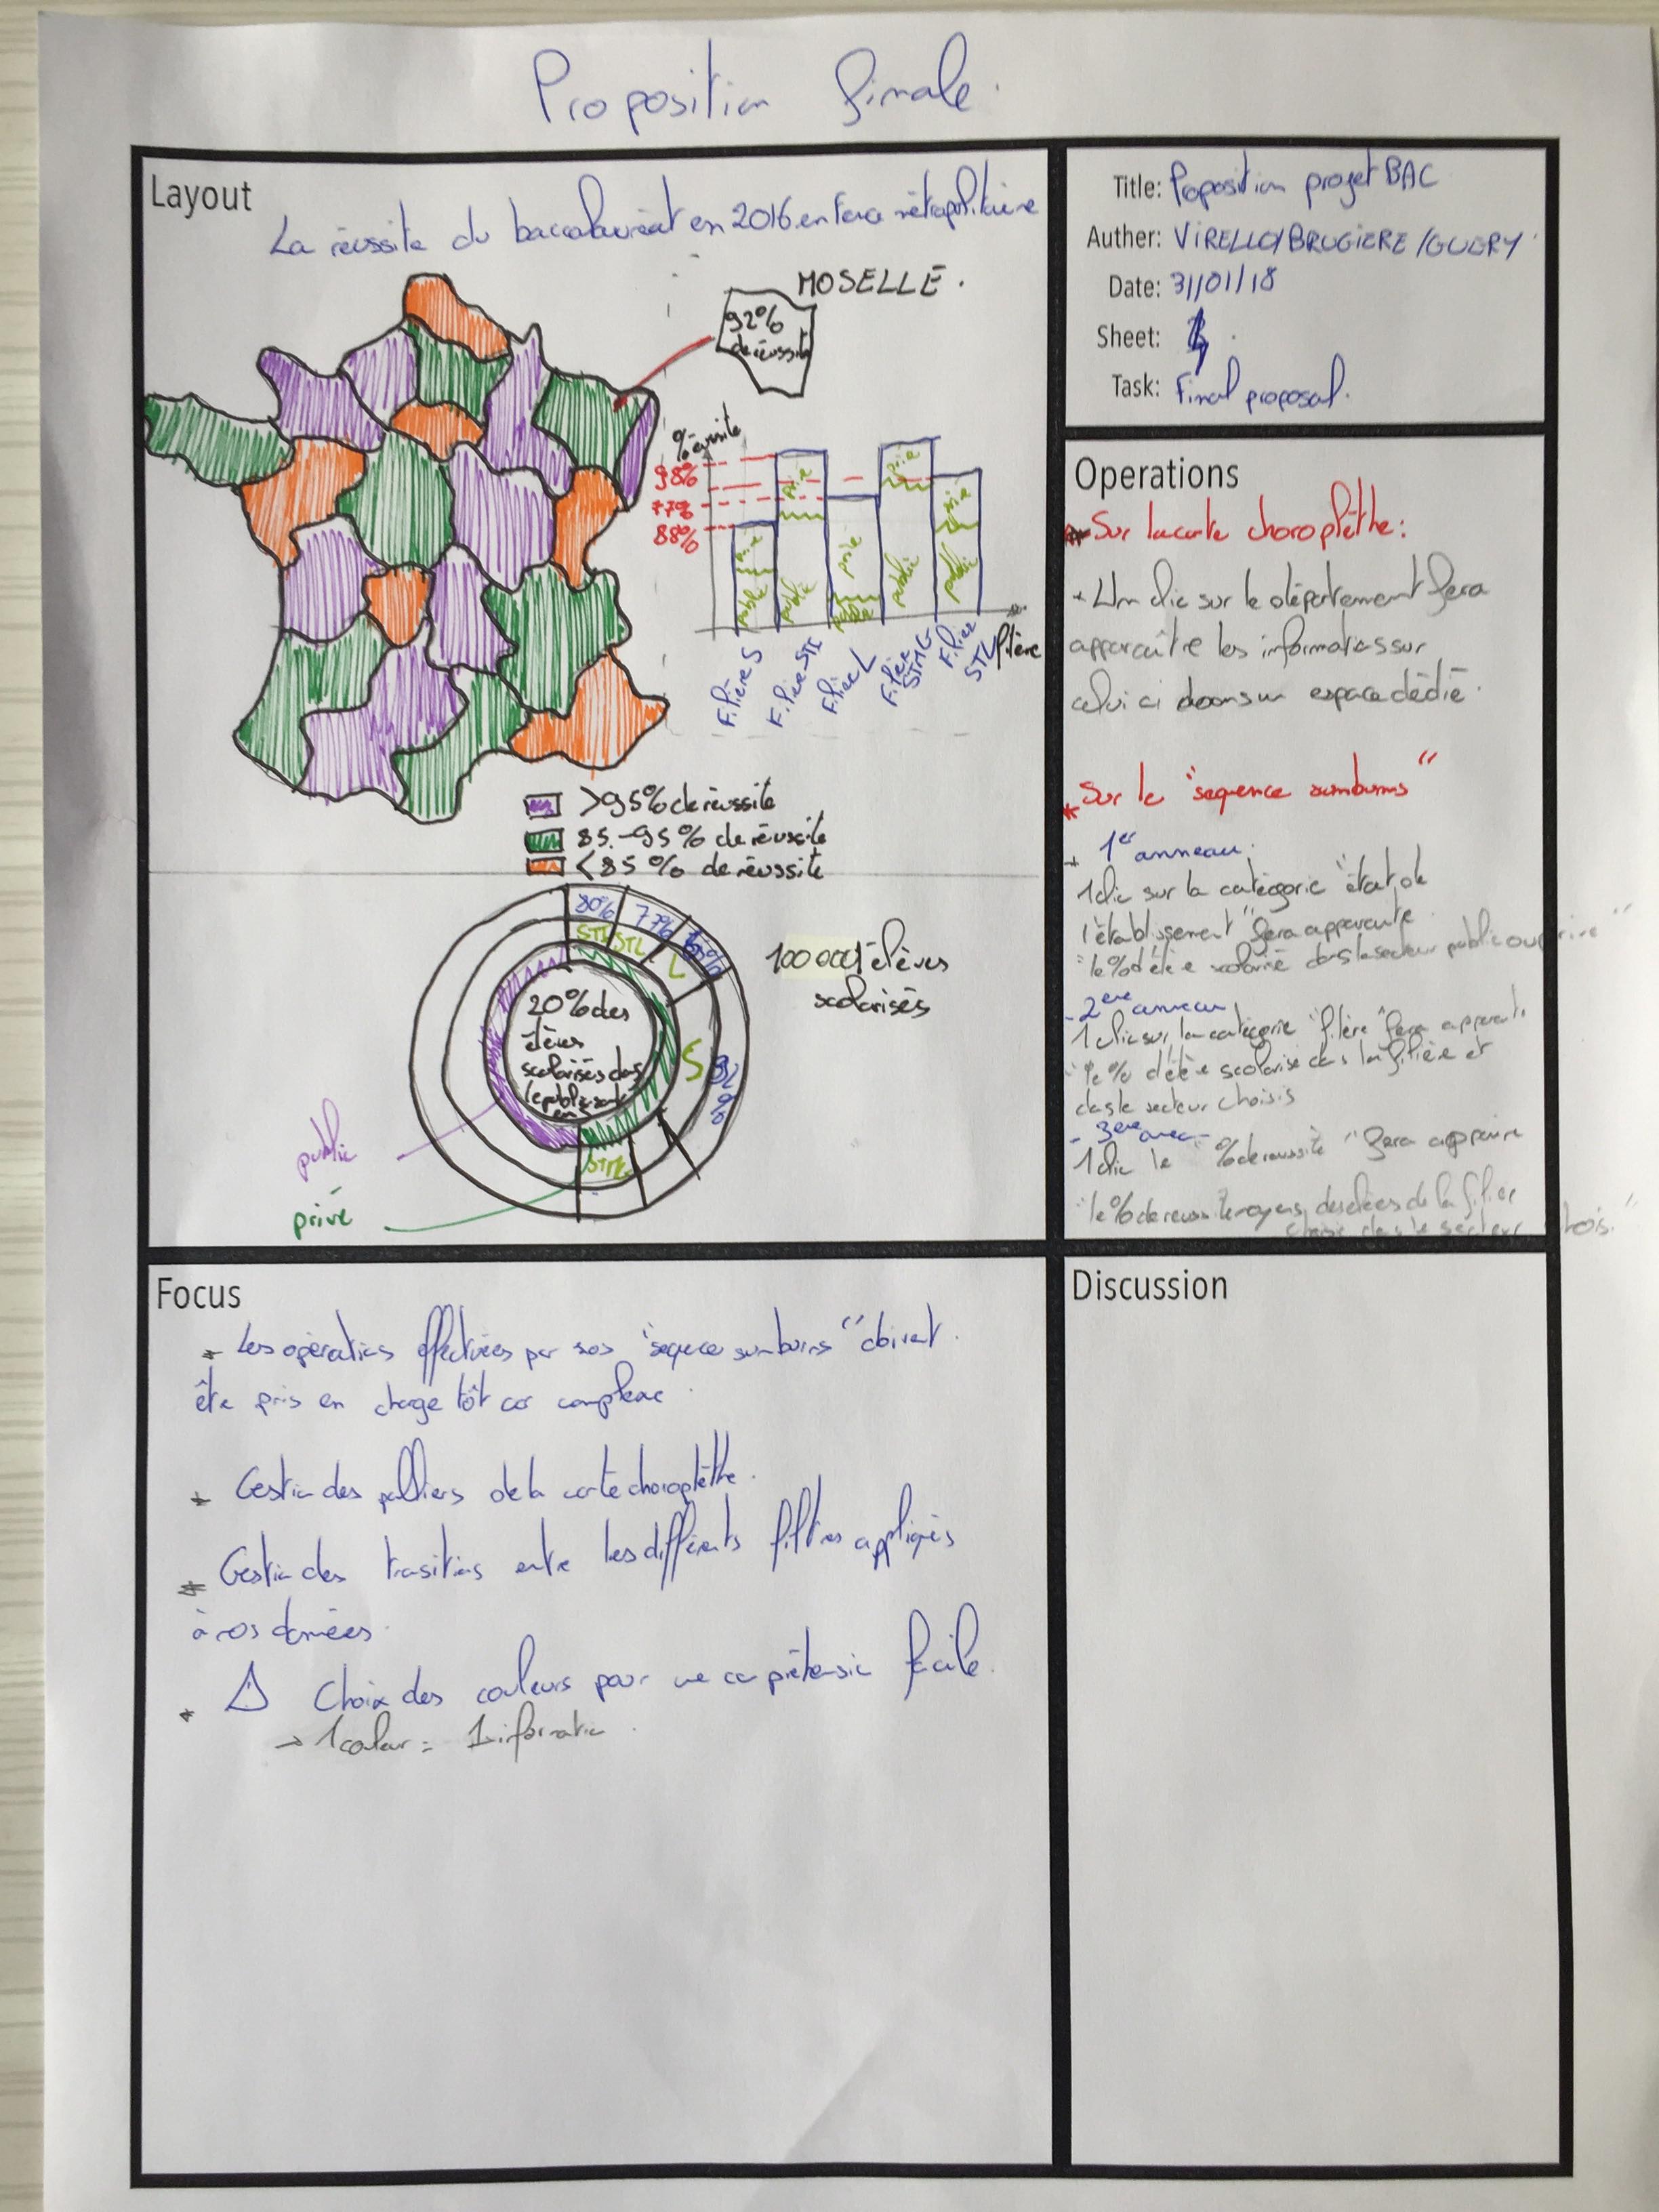 Proposition finale.
Layout
La réussite du baccalauréat en 2016 en France métropolitaine
MOSELLE.
92%
de réussite
% réussite
98%
77%
88%
privé
privé
privé
privé
privé
public
public
public
public
public
Filière S
Filière STI
Filière L
Filière STMG
Filière STL
filière
>95% de réussite
85-95% de réussite
<85% de réussite
80%
77%
STI
STL
L
S
20% des
élèves
scolarisés dans
le public sont
100 000 élèves
scolarisés
public
privé
Title: Proposition projet BAC
Auther: VIRELLO/BRUGIERE/GUERY
Date: 31/01/18
Sheet:
Task: Final proposal.
Operations
* Sur la carte choroplèthe:
+ Un clic sur le département fera
apparaître les informations sur
celui ci dans un espace dédié.
* Sur le "sequence sunburns"
+ 1er anneau.
1 clic sur la catégorie "état de
l'établissement" fera apparaitre
"le % d'élève scolarisé dans le secteur public ou privé"
- 2ème anneau
1 clic sur la catégorie "filière" fera
"le % d'élève scolarisé dans la filière et
dans le secteur choisis
- 3ème
1 clic le "% de réussite" fera apparaitre
"le % de réussite moyens des élèves de la filière
choisie dans le secteur choisi."
Focus
* Les opérations effectuées par nos "séquence sunburns" doivent
être pris en charge tôt car complexe.
* Gestion des palliers de la carte choroplèthe.
* Gestion des transitions entre les différents filtres appliqués
à nos données.
* ⚠ Choix des couleurs pour une compréhension facile.
→ 1 couleur = 1 information.
Discussion